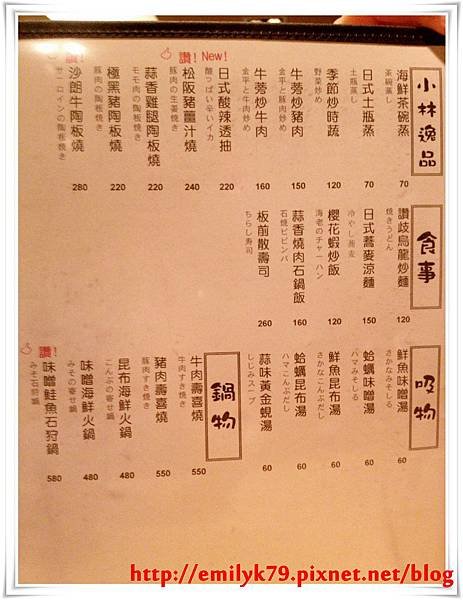 小林逸品
海鮮茶碗蒸
茶碗蒸し
70
日式土瓶蒸
土瓶蒸し
70
季節炒時蔬
野菜炒め
120
牛蒡炒豬肉
金平と豚肉炒め
150
牛蒡炒牛肉
金平と牛肉炒め
160
New!
日式酸辣透抽
酸っぱい辛いイカ
220
讚!
松阪豬薑汁燒
豚肉の生姜焼き
240
蒜香雞腿陶板燒
モモ肉の陶板焼き
220
極黑豬陶板燒
豚肉の陶板焼き
220
讚!
沙朗牛陶板燒
サーロインの陶板焼き
280
食事
讚歧烏龍炒麵
焼きうどん
120
日式蕎麥涼麵
冷やし蕎麦
150
櫻花蝦炒飯
海老のチャーハン
120
蒜香燒肉石鍋飯
石焼ビビンバ
160
板前散壽司
ちらし寿司
260
吸物
鮮魚味噌湯
さかなみそしる
60
蛤蠣味噌湯
ハマみそしる
60
鮮魚昆布湯
さかなこんぶだし
60
蛤蠣昆布湯
ハマこんぶだし
60
蒜味黃金蜆湯
しじみスープ
60
鍋物
牛肉壽喜燒
牛肉すき焼き
550
豬肉壽喜燒
豚肉すき焼き
550
昆布海鮮火鍋
こんぶの寄せ鍋
480
味噌海鮮火鍋
みその寄せ鍋
480
讚!
味噌鮭魚石狩鍋
みそ石狩鍋
580
http://emilyk79.pixnet.net/blog